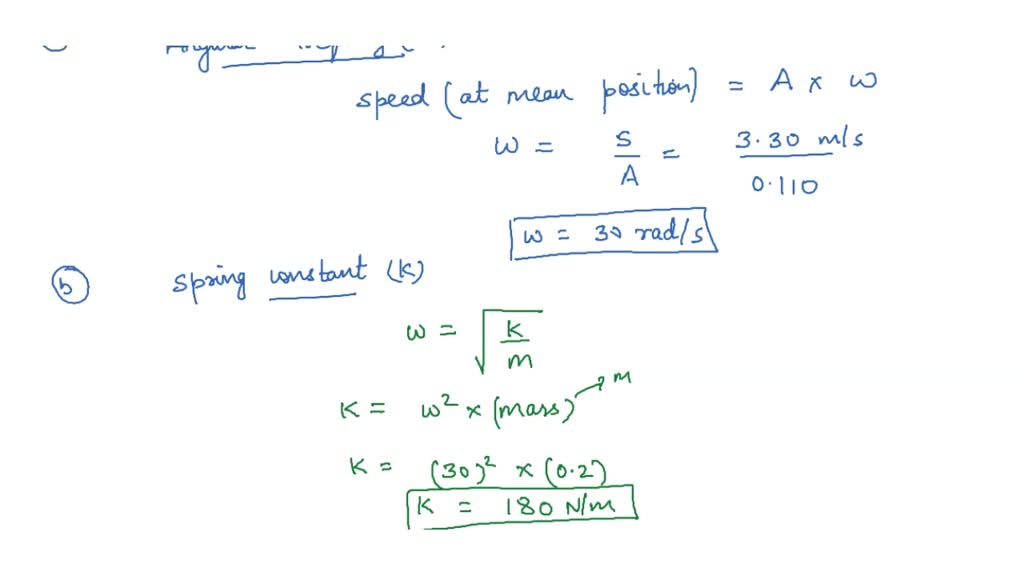 speed (at mean position) = A × ω
ω = S/A = 3.30 m/s / 0.110
ω = 30 rad/s
(b) spring constant (K)
ω = √(K/m)
K = ω² × (mass) → m
K = (30)² × (0.2)
K = 180 N/m